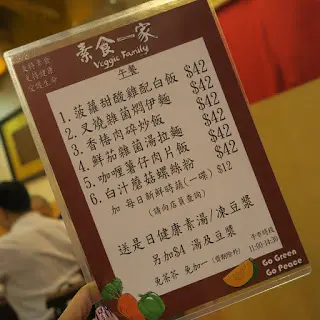 素食一家
Veggie Family
午餐
1. 菠蘿甜酸雞配白飯 $42
2. 叉燒雜菌燜伊麵 $42
3. 香椿肉碎炒飯 $42
4. 鮮茄雜菌湯拉麵 $42
5. 咖喱薯仔肉片飯 $42
6. 白汁蘑菇螺絲粉 $42
加 每日新鮮時蔬(一碟) $12
(請向店員查詢)
送是日健康素湯/凍豆漿
另加$4 湯及豆漿
免茶芥 免加一
11:00-14:30
Go Green
Go Peace